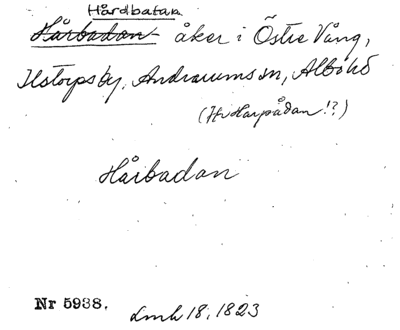 Hårdbatan
Hårbadan åker i Östre Vång,
Ilstorps by, Andrarums sn, Albo hd
(Jfr Harpådan!?)
Hårbadan
Nr 5938. Lmh 18, 1823